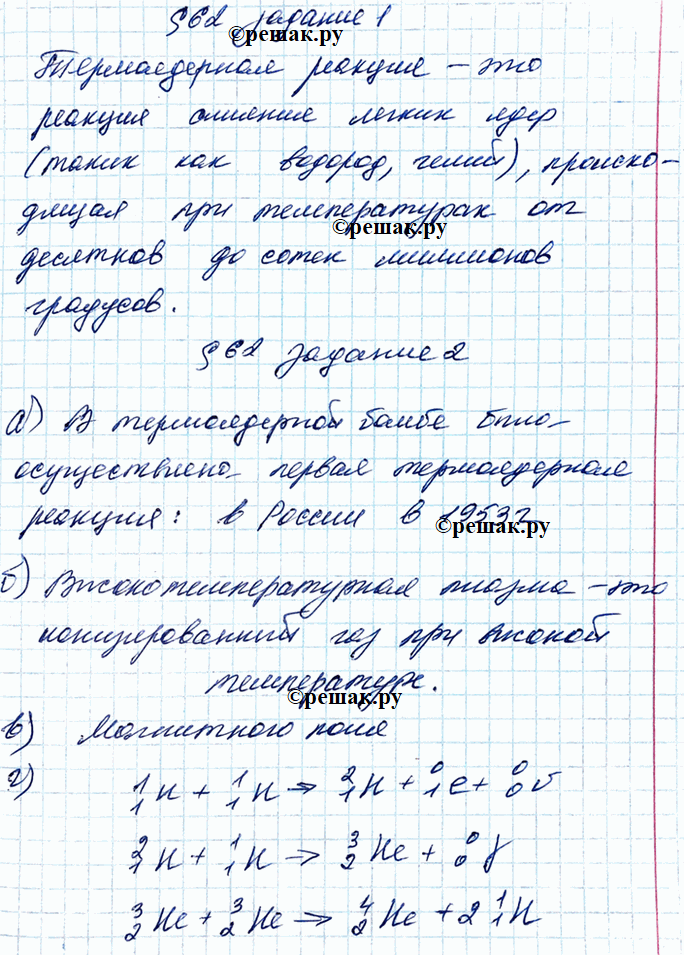 §62 задание 1
©решак.ру
Термоядерная реакция – это
реакция слияния легких ядер
(таких как водород, гелий), происхо-
дящая при температурах от
©решак.ру
десятков до сотен миллионов
градусов.
§62 задание 2
а) В термоядерной бомбе было
осуществлено первая термоядерная
реакция: в России в 1953г
©решак.ру
б) Высокотемпературная плазма – это
ионизированный газ при высокой
температуре.
©решак.ру
в) Магнитного поля
г) ¹₁H + ¹₁H → ²₁H + ⁰₁e + ⁰₀ν
²₁H + ¹₁H → ³₂He + ⁰₀γ
³₂He + ³₂He → ⁴₂He + 2 ¹₁H